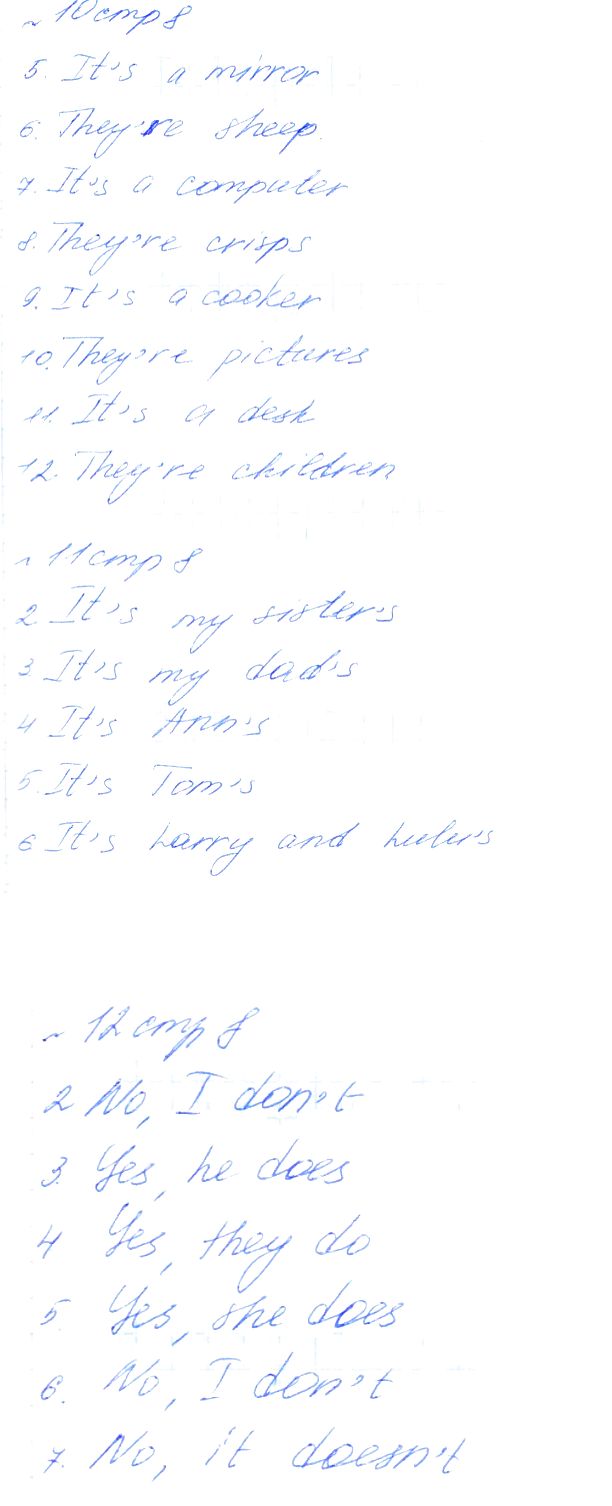 ~ 10 стр 8
5. It's a mirror
6. They're sheep.
7. It's a computer
8. They're crisps
9. It's a cooker
10. They're pictures
11. It's a desk
12. They're children
~ 11 стр 8
2 It's my sister's
3 It's my dad's
4 It's Ann's
5. It's Tom's
6 It's Larry and Lulu's
~ 12 стр 8
2 No, I don't
3. Yes, he does
4 Yes, they do
5. Yes, she does
6. No, I don't
7. No, it doesn't